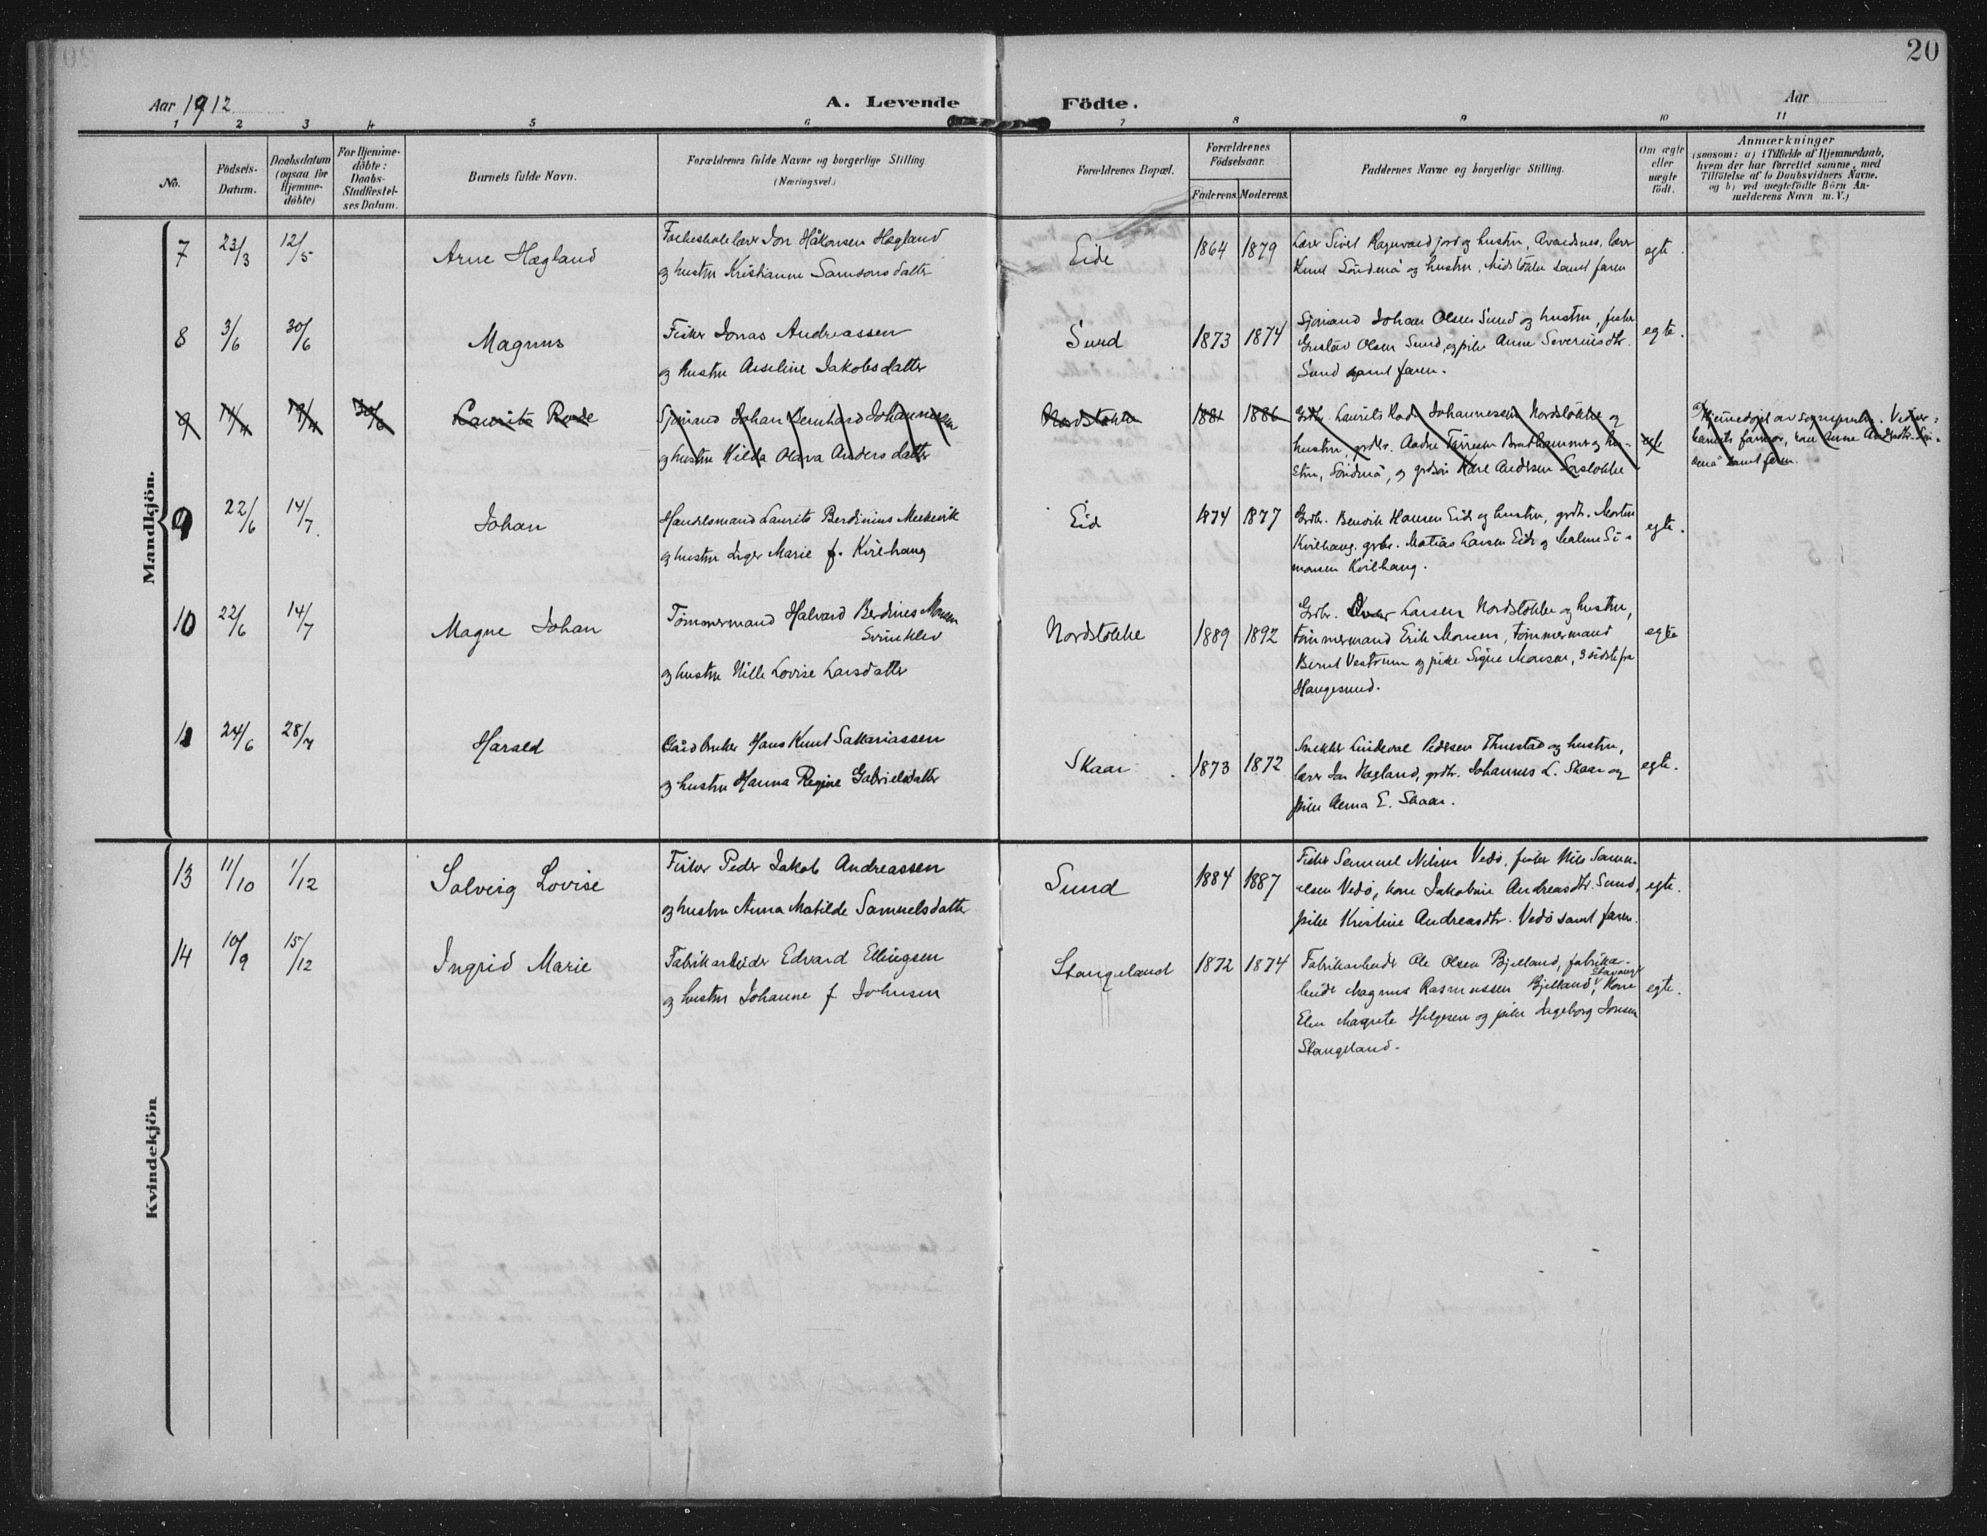 20
Aar 1912 A. Levende Födte. Aar
1 2 3 4 5 6 7 8 9 10 11
No.
Födsels-Datum.
Daabsdatum (ogsaa for Hjemme-döbte)
For Hjemme-döbte: Daabs-Stadfæstel-ses Datum.
Barnets fulde Navn.
Forældrenes fulde Navne og borgerlige Stilling (Næringsvei.)
Forældrenes Bopæl.
Forældrenes Födselsaar.
Faderens. Moderens.
Faddernes Navne og borgerlige Stilling.
Om ægte eller uægte födt.
Anmærkninger
(saasom: a) i Tilfælde af Hjemmedaab,
hvem der har forrettet samme, med
Tilföielse af to Daabsvidners Navne,
og b) ved uegtefödte Börn An-
melderens Navn m. V.)
Mandkjön.
7 23/3 12/5 Arne Hægland
Folkeskolelærer Jon Håkonsen Hægland
og hustru Kristianne Samsonsdatter
Eide 1864 1879
Lærer Sivert Ragnvaldjord og hustru, Avaldsnes, lærer
Knut Söndenå og hustru, Midstokke samt faren
egte.
8 3/6 30/6 Magnus
Fisker Jonas Andreassen
og hustru Asseline Jakobsdatter
Sund 1873 1874
Sjömand Johan Olsen Sund og hustru, fisker
Gustav Olsen Sund, og pike Anne Severinsdtr.
Sund samt faren.
egte.
9 Laurits Rode
Sjömand Johan Bernhard Johannessen
og hustru Hilda Olava Andersdatter
Nordstokke 1881 1886
Grdbr. Laurits Johannessen Nordstokke og
hustru, grdbr. Brathammer og hu-
stru, Söndenå, og Karl Andersen
egte
samt faren.
9 22/6 14/7 Johan
Handelsmand Laurits Berdinius Mekevik
og hustru Inger Marie f. Kvilhaug
Eid 1874 1877
Grdbr. Bendik Hansen Eide og hustru, grdbr. Morten
Kvilhaug. grbr. Matias Larsen Eide og Malene Si-
monsen Kvilhaug.
egte.
10 22/6 14/7 Magne Johan
Tømmermand Halvard Berdines Monsen
Svineklev
og hustru Nille Lovise Larsdatter
Nordstokke 1889 1892
Grdbr. Iver Larsen Nordstokke og hustru,
tömmermand Erik Monsen, Tømmermand
Bernt Vestrum og pike Signe Monsen, 3 sidste fra
Haugesund.
egte
11 24/6 28/7 Harald
Gårdbruker Hans Knut Sakariassen
og hustru Hanna Regine Gabrielsdatter
Skaar 1873 1872
Snekker Lindeval Pedersen Thuestad og hustru,
lærer Jon Hægland, grdbr. Johannes L. Skaar og
pike Anna E. Skaar.
egte.
Kvindekjön
13 11/10 1/12 Solveig Lovise
Fisker Peder Jakob Andreassen
og hustru Anna Matilde Samuelsdatter
Sund 1884 1887
Fisker Samuel Nilsen Vedö, fisker Nils Samu-
elsen Vedö, kone Jakobine Andreasdtr. Sund,
pike Kristine Andreasdtr. Vedö samt faren.
egte.
14 10/9 15/12 Ingrid Marie
Fabrikarbeider Edvard Ellingsen
og hustru Johanne f. Johnsen
Stangeland 1872 1874
Fabrikarbeider Ole Olsen Bjelland, fabrikar-
beider Magnus Rasmussen Bjelland, Stavanger, Kone
Elen Magrete Helgesen og pike Ingeborg Jonsen
Stangeland.
egte.